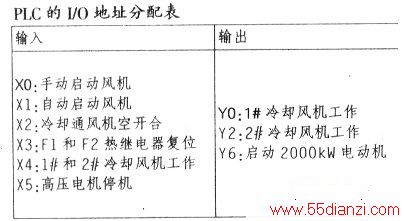 PLC 的 I/O 地址分配表
输入
输出
X0:手动启动风机
X1:自动启动风机
X2:冷却通风机空开合
X3:F1 和 F2 热继电器复位
X4:1# 和 2# 冷却风机工作
X5:高压电机停机
Y0:1# 冷却风机工作
Y2:2# 冷却风机工作
Y6:启动 2000kW 电动机
www.55dianzi.com